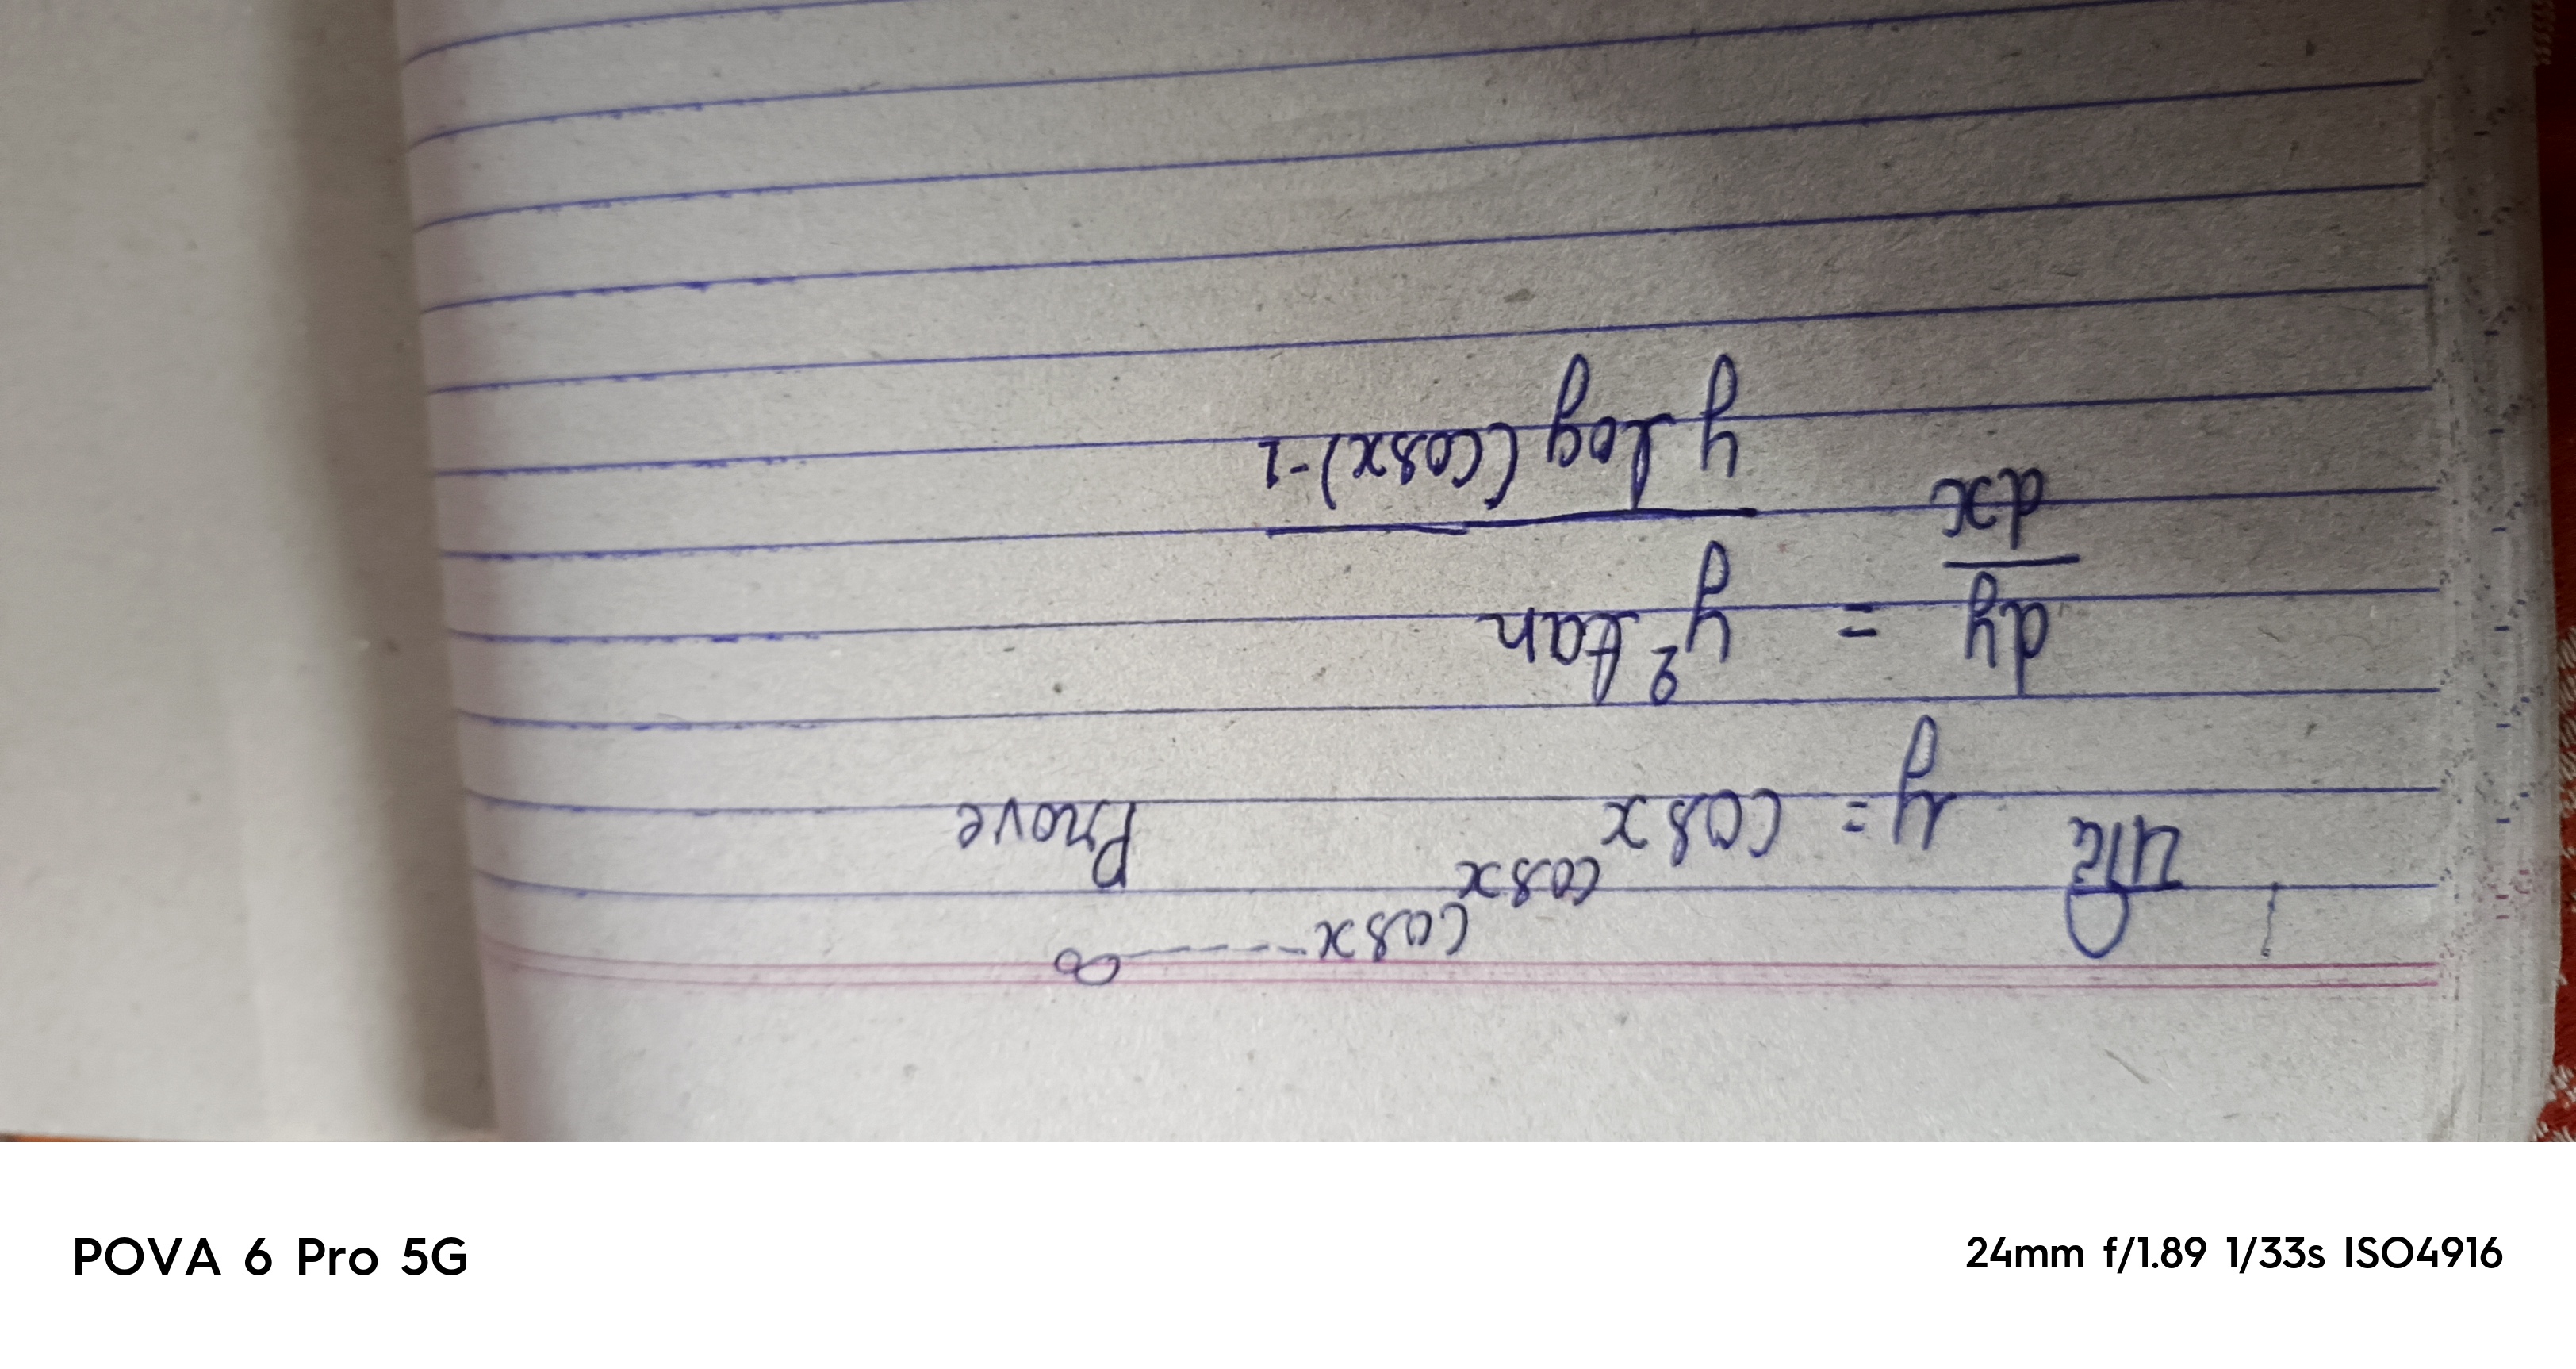 यदि y = cosx^cosx^cosx----∞ Prove
dy/dx = y² tan / y log (cosx) -1
POVA 6 Pro 5G
24mm f/1.89 1/33s ISO4916